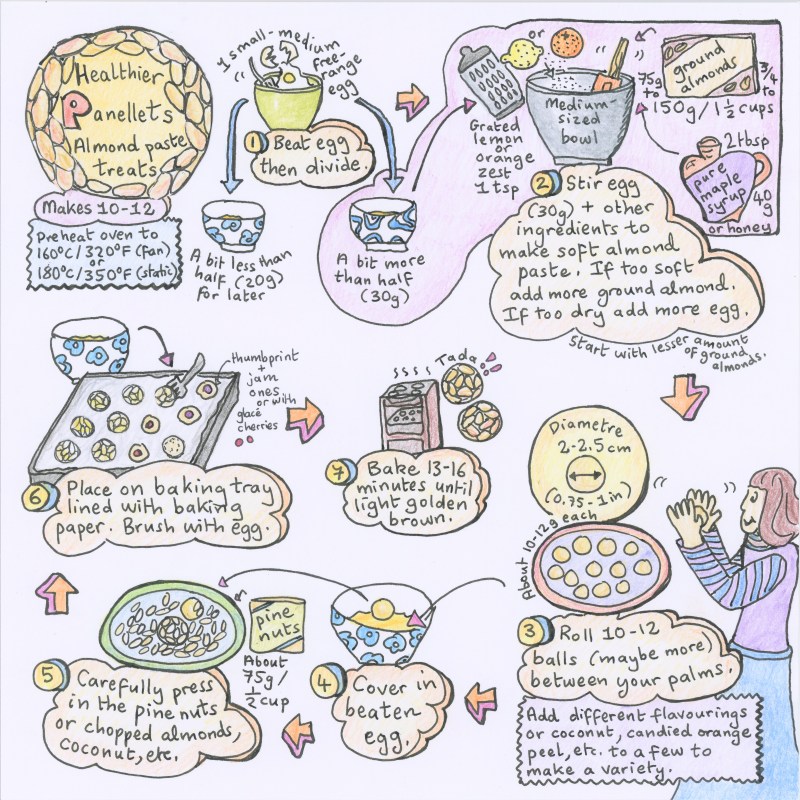 Healthier
Panellets
Almond paste
treats
Makes 10-12
Preheat oven to
160°C/320°F (fan)
or
180°C/350°F (static)
1 small-medium
free-
range
egg
1 Beat egg
then divide.
A bit less than
half (20g)
for later
A bit more
than half
(30g)
or
Grated
lemon
or
orange
zest
1 tsp
Medium-
sized
bowl
ground
almonds
75g
to
150g/1½ cups
3/4
to
2 tbsp
pure
maple
syrup
40
g
or honey
2 Stir egg
(30g) + other
ingredients to
make soft almond
paste. If too soft
add more ground almond.
If too dry add more egg.
Start with lesser amount
of ground
almonds.
Diametre
2-2.5cm
(0.75-1in)
About 10-12g each
3 Roll 10-12
balls (maybe more)
between your palms.
Add different flavourings
or coconut, candied orange
peel, etc. to a few to
make a variety.
4 Cover in
beaten
egg.
pine
nuts
About
75g/
½ cup
5 Carefully press
in the pine nuts
or chopped almonds,
coconut, etc.
thumbprint
+
jam
ones
or with
glacé
cherries
6 Place on baking tray
lined with baking
paper. Brush with egg.
Tada!
7 Bake 13-16
minutes until
light golden
brown.